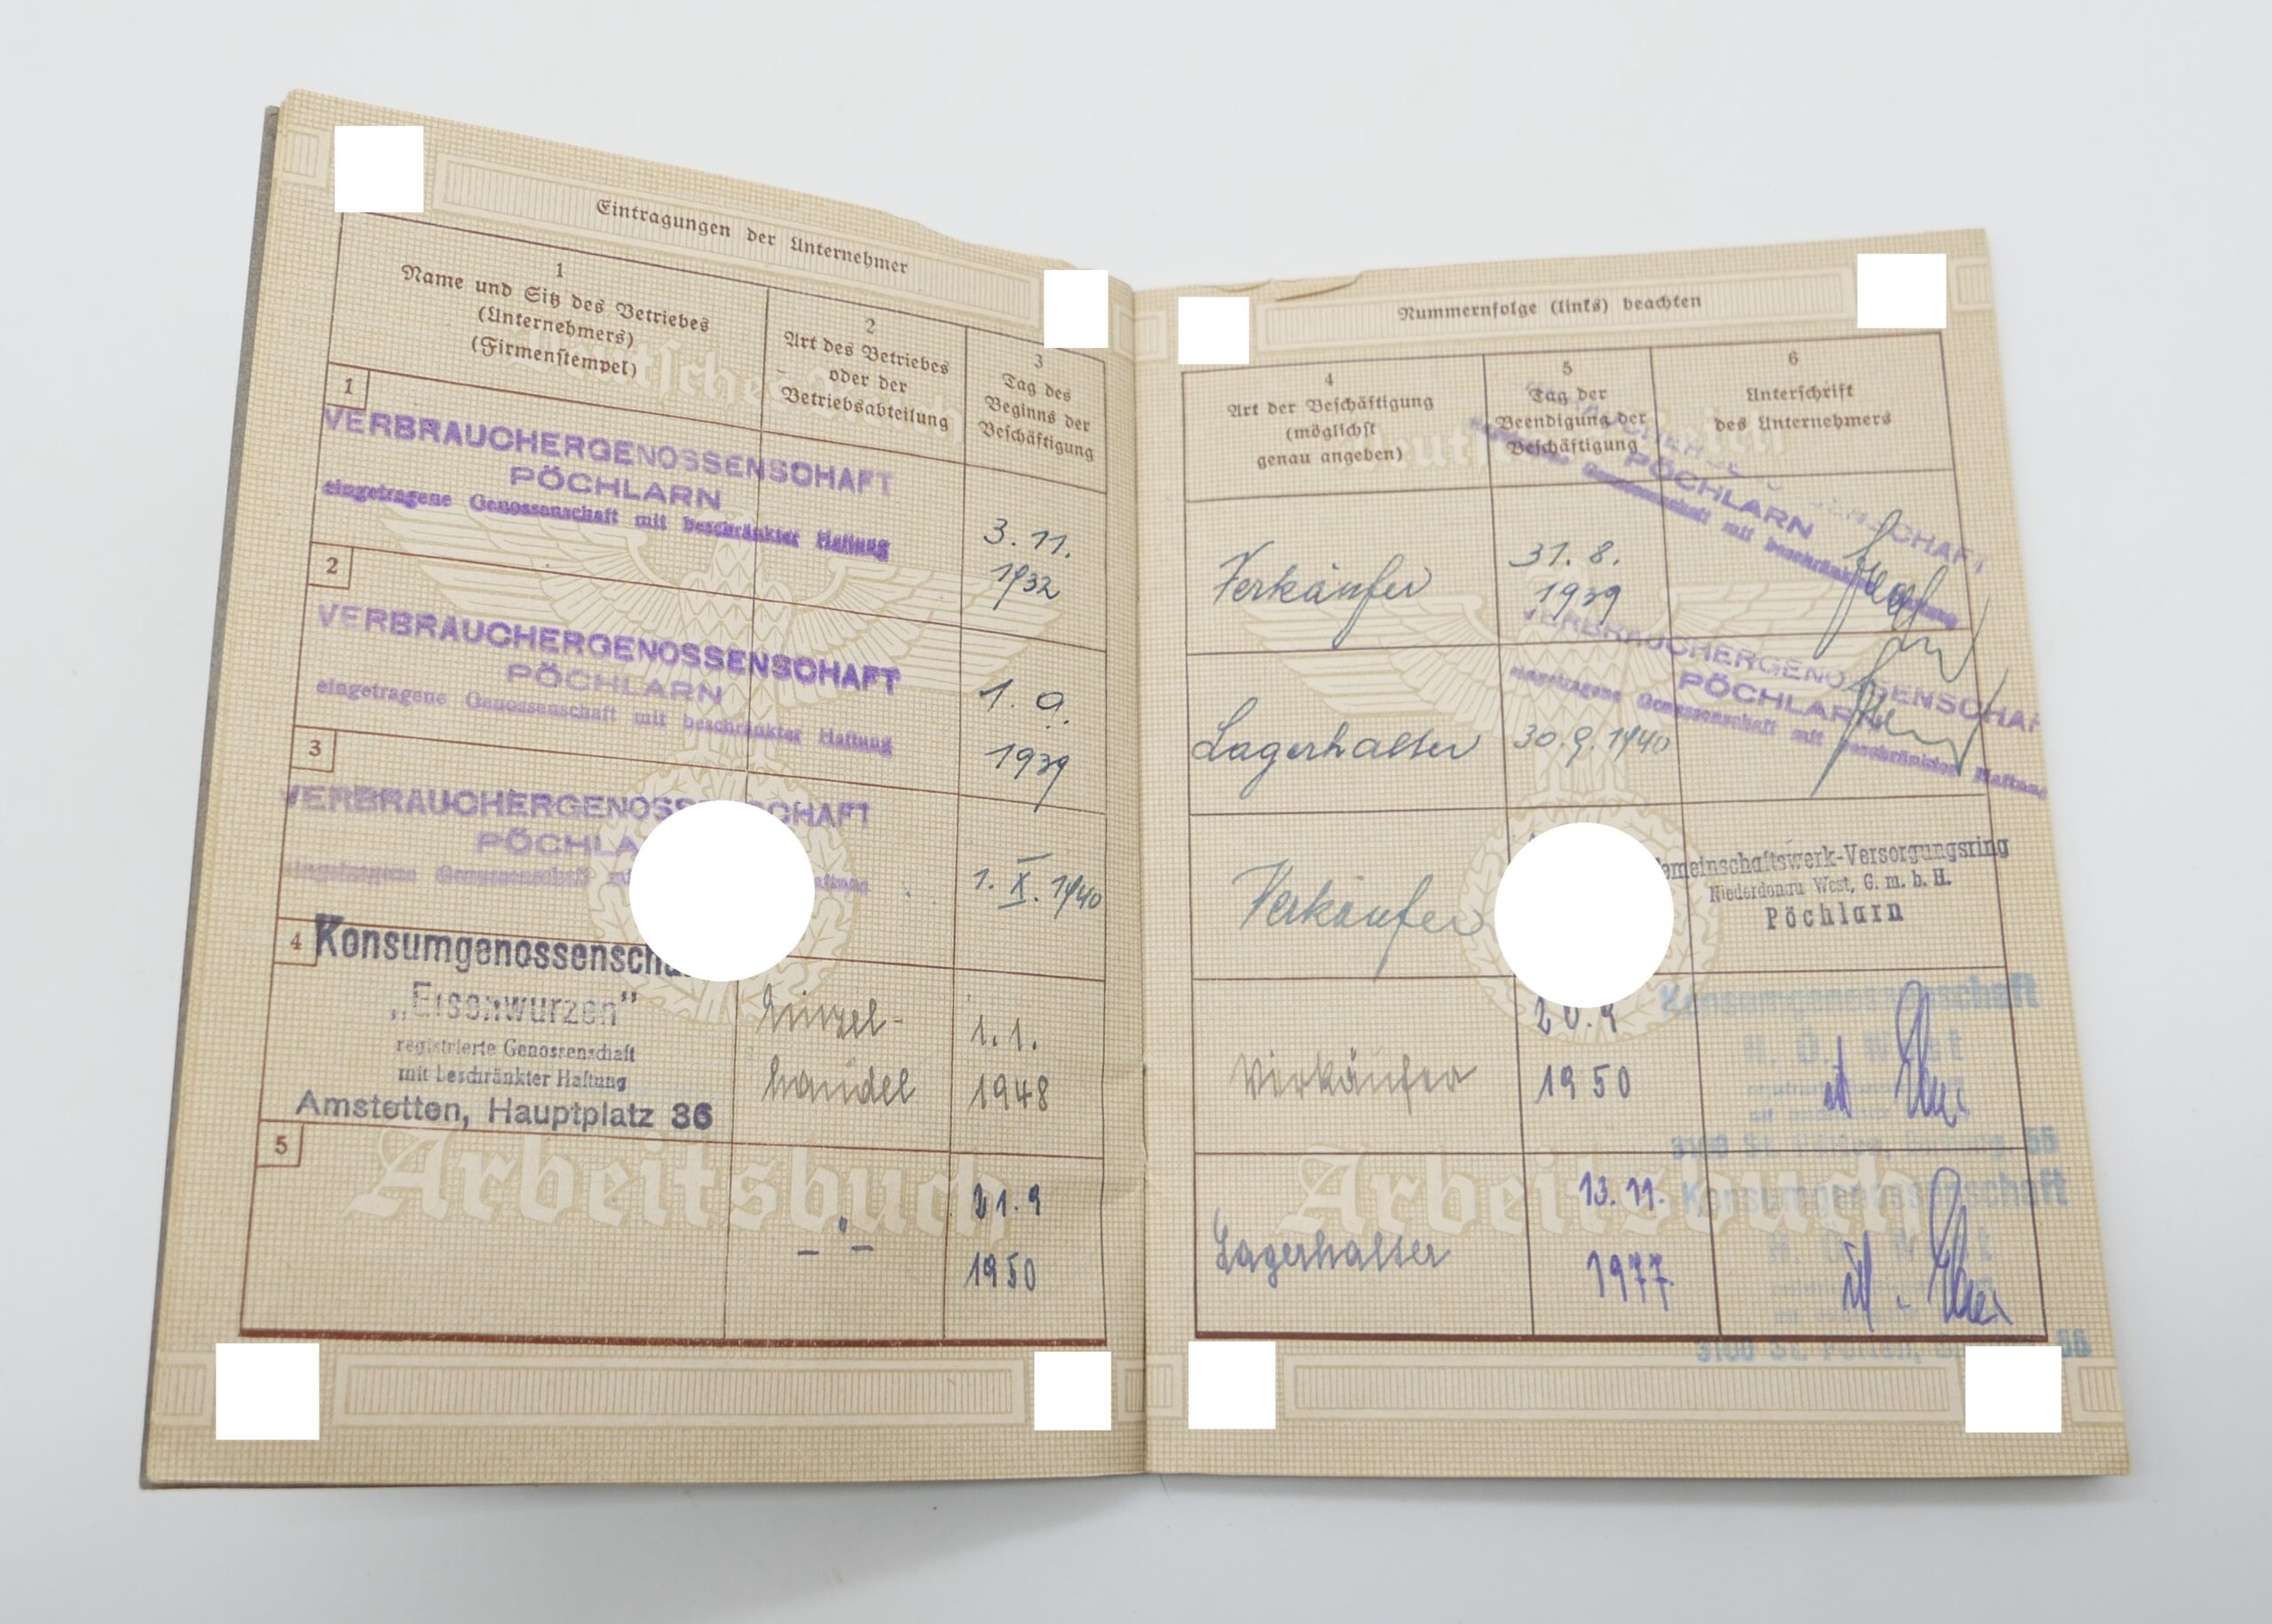 Eintragungen der Unternehmer
1
Name und Sitz des Betriebes
(Unternehmers)
(Firmenstempel)
2
Art des Betriebes
oder der
Betriebsabteilung
3
Tag des
Beginns der
Beschäftigung
1
VERBRAUCHERGENOSSENSCHAFT
PÖCHLARN
eingetragene Genossenschaft mit beschränkter Haftung
3. 11.
1932
2
VERBRAUCHERGENOSSENSCHAFT
PÖCHLARN
eingetragene Genossenschaft mit beschränkter Haftung
1. 9.
1939
3
VERBRAUCHERGENOSS CHAFT
PÖCHLA
eingetragene Genossenschaft
1. X. 1940
4
Konsumgenossensch
„Eisenwurzen"
registrierte Genossenschaft
mit beschränkter Haftung
Amstetten, Hauptplatz 36
Einzel-
handel
1. 1.
1948
5
– " –
21. 9
1950
Deutsches
Arbeitsbuch
Nummernfolge (links) beachten
4
Art der Beschäftigung
(möglichst
genau angeben)
5
Tag der
Beendigung der
Beschäftigung
6
Unterschrift
des Unternehmers
Verkäufer
31. 8.
1939
PÖCHLARN
Genossenschaft mit beschränkter
Lagerhalter
30. 9. 1940
VERBRAUCHERGENOSSENSCHAF
PÖCHLARN
eingetragene Genossenschaft mit beschränkter Haftung
Verkäufer
emeinschaftswerk-Versorgungsring
Niederdonau West, G. m. b. H.
Pöchlarn
Verkäufer
20. 9
1950
Konsumgenossenschaft
N. Ö. West
3100 St. Pölten,
Lagerhalter
13. 11.
1977.
Konsumgenossenschaft
N. Ö. West
3100 St. Pölten,
Deutsches Reich
Arbeitsbuch